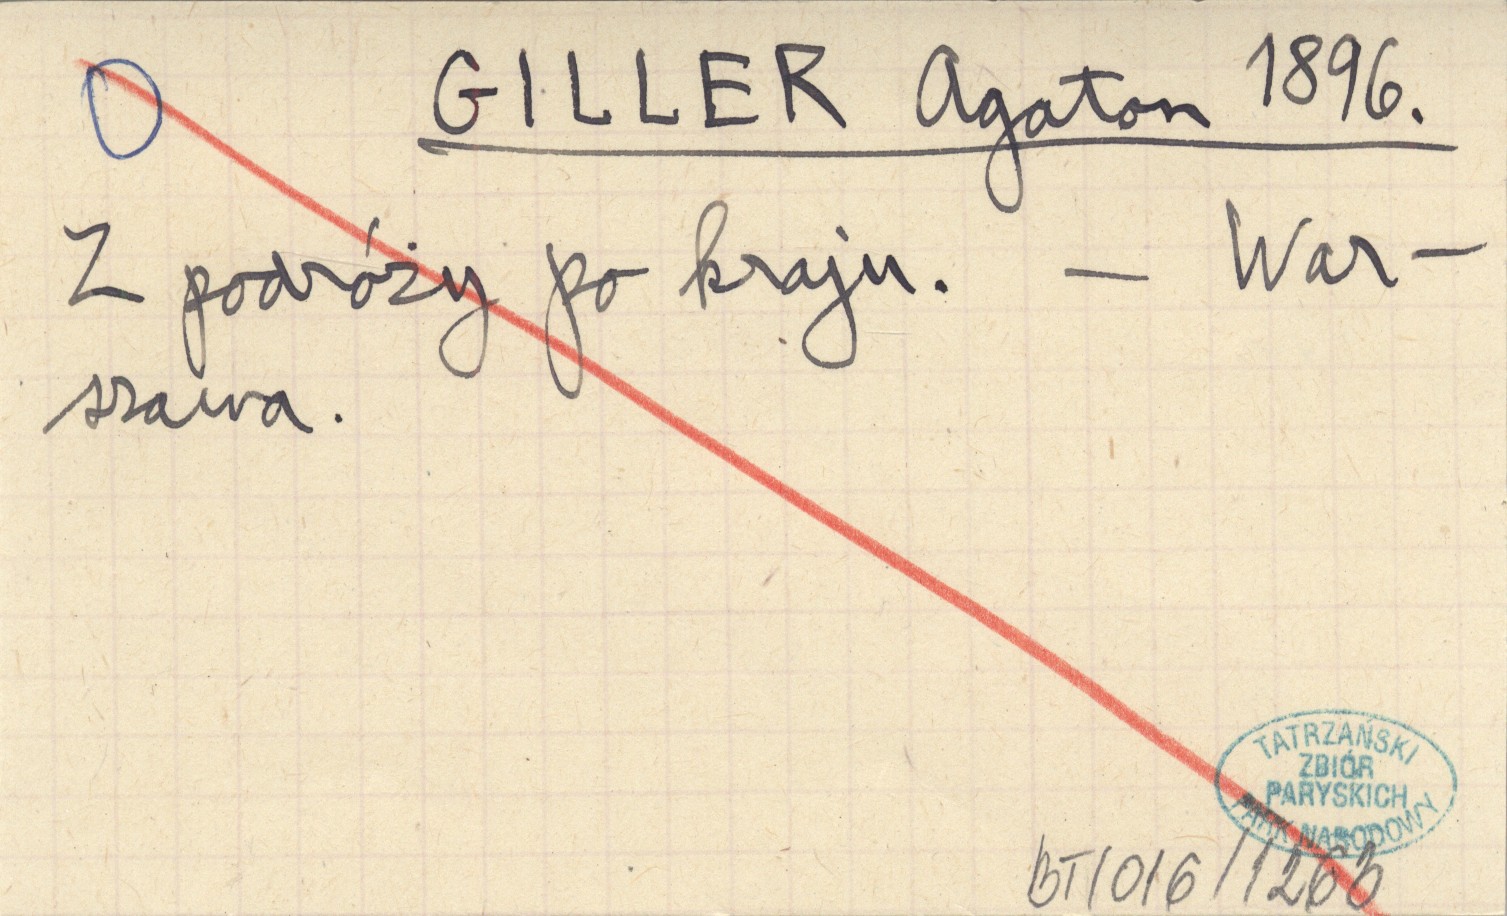 GILLER Agaton 1896.
Z podróży po kraju. — War-
szawa.
TATRZAŃSKI
ZBIÓR
PARYSKICH
PARK NARODOWY
BT/016/1263